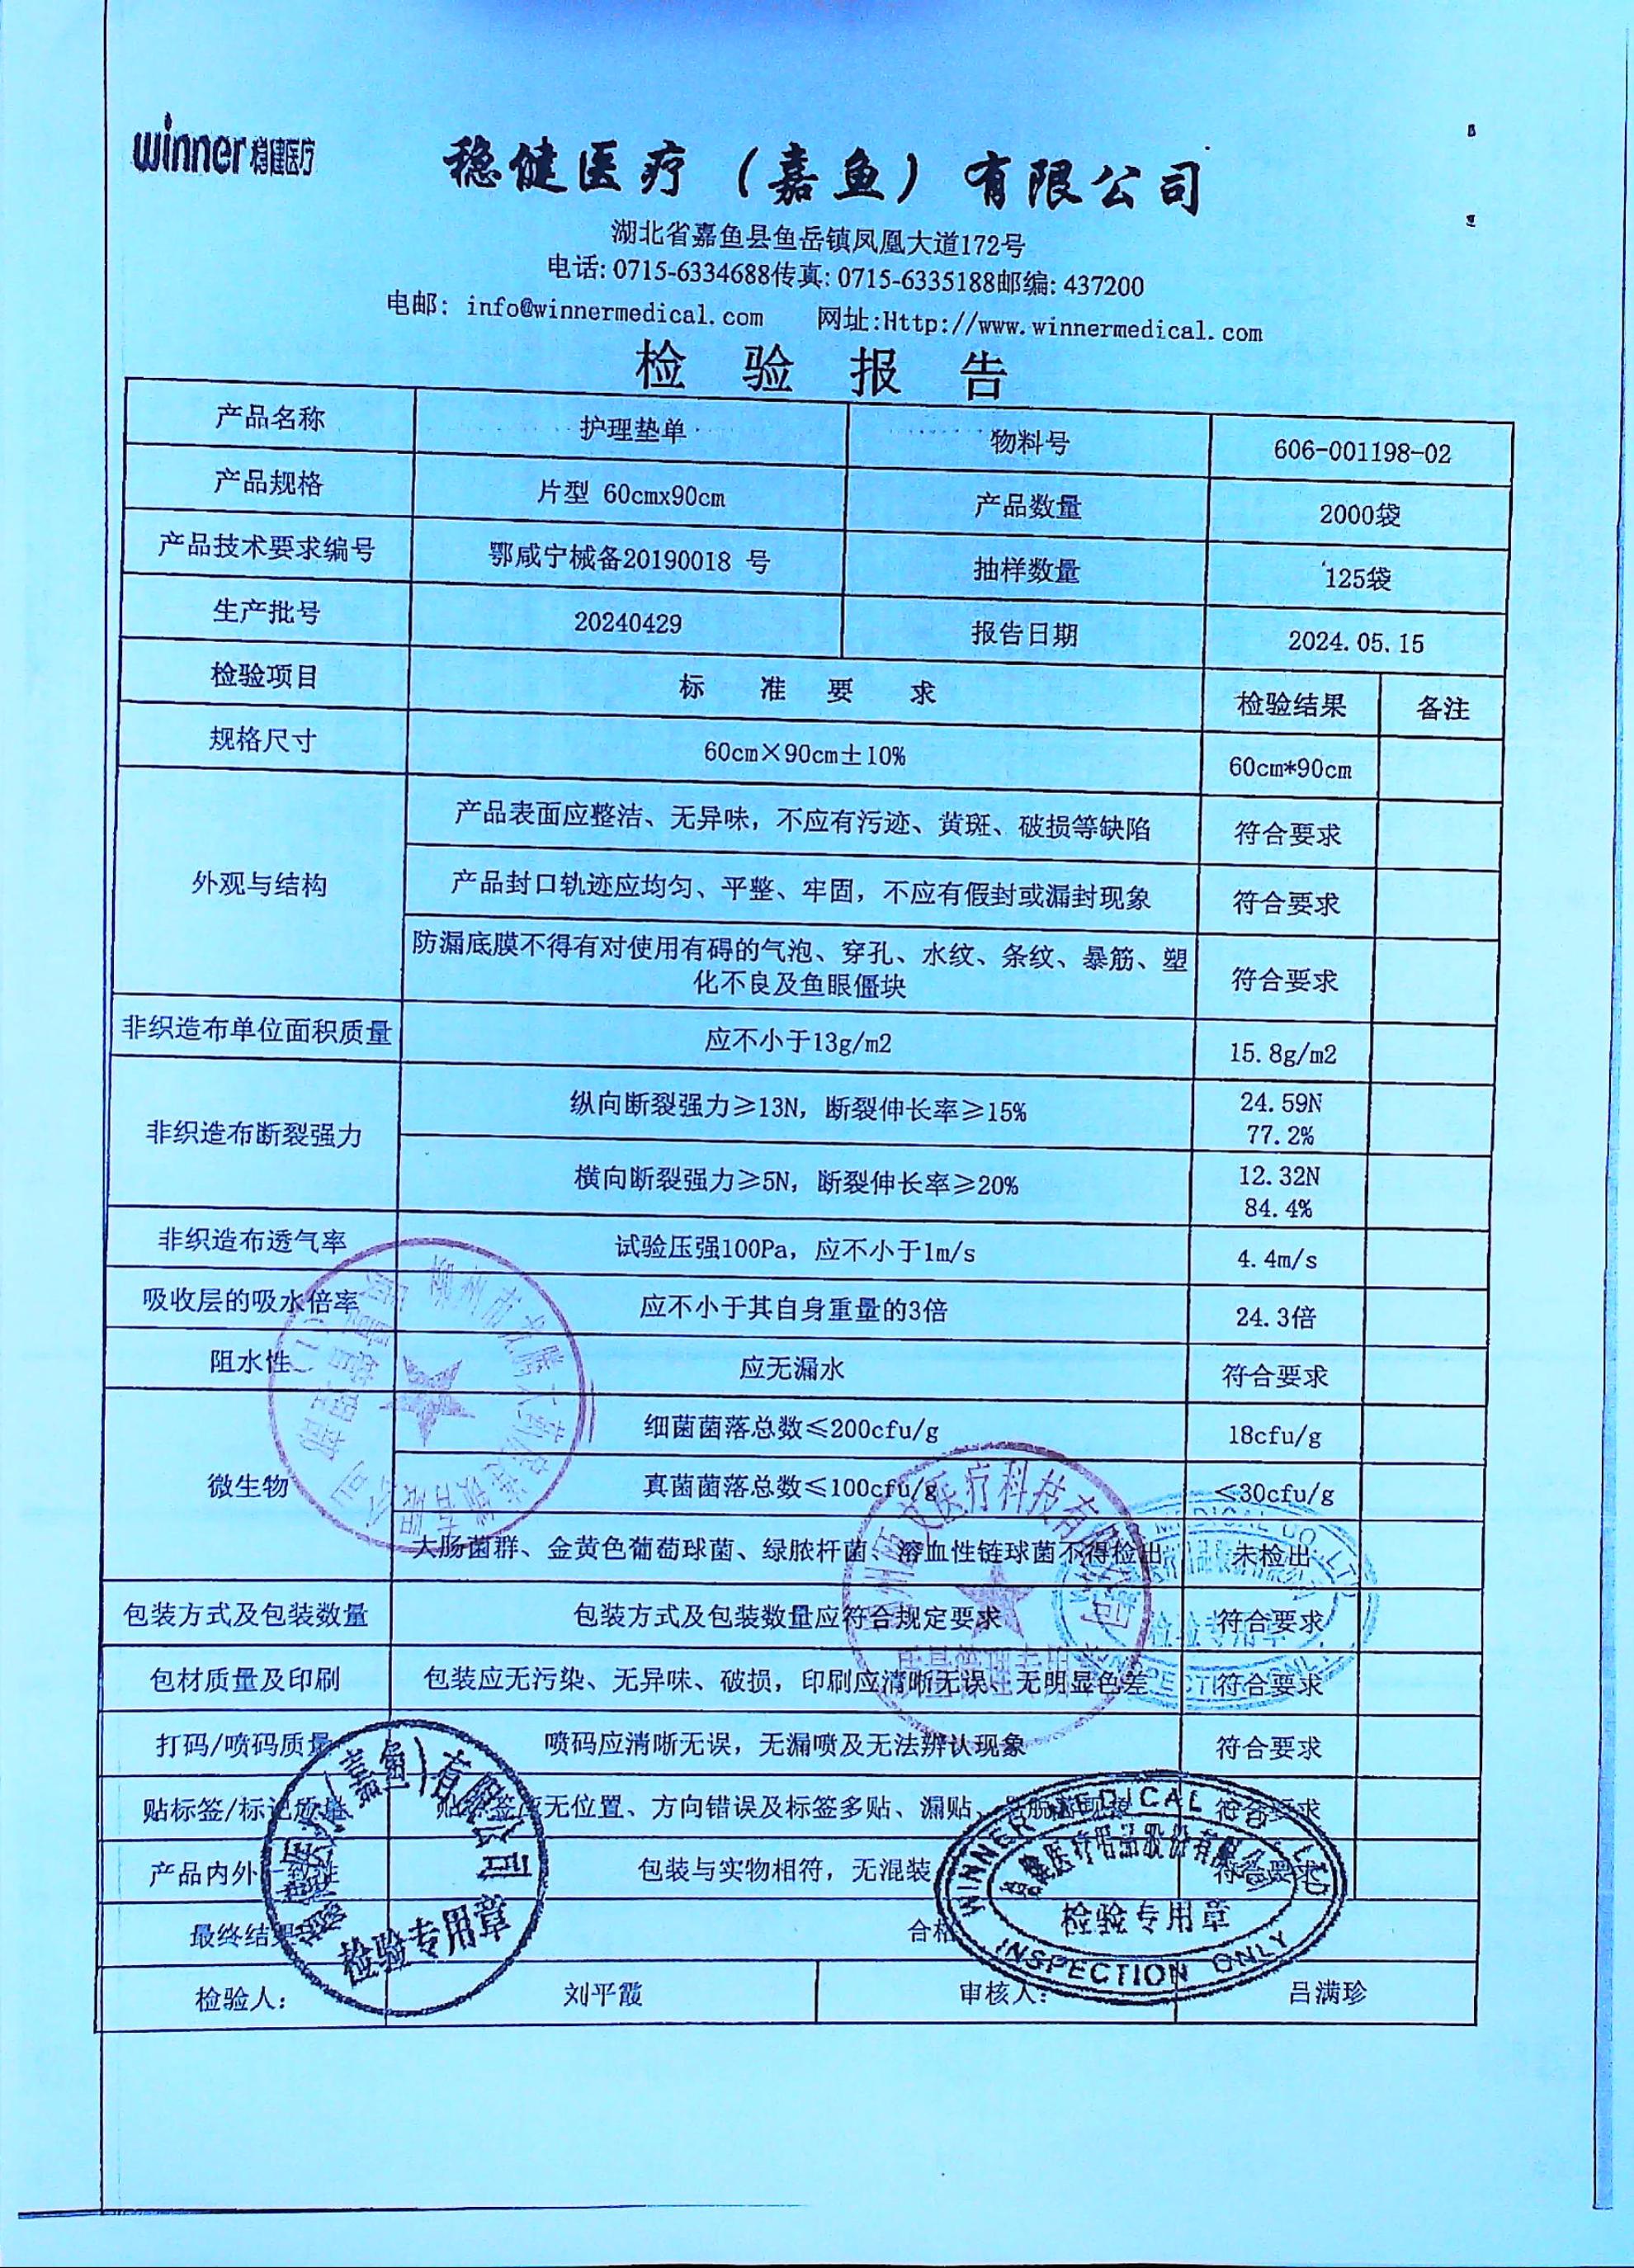 winner 稳健医疗
稳健医疗（嘉鱼）有限公司
湖北省嘉鱼县鱼岳镇凤凰大道172号
电话: 0715-6334688传真: 0715-6335188邮编: 437200
电邮: info@winnermedical.com 网址:Http://www.winnermedical.com
检 验 报 告
产品名称 护理垫单 物料号 606-001198-02
产品规格 片型 60cmx90cm 产品数量 2000袋
产品技术要求编号 鄂咸宁械备20190018 号 抽样数量 125袋
生产批号 20240429 报告日期 2024.05.15
检验项目 标 准 要 求 检验结果 备注
规格尺寸 60cm×90cm±10% 60cm*90cm
外观与结构
产品表面应整洁、无异味，不应有污迹、黄斑、破损等缺陷 符合要求
产品封口轨迹应均匀、平整、牢固，不应有假封或漏封现象 符合要求
防漏底膜不得有对使用有碍的气泡、穿孔、水纹、条纹、暴筋、塑
化不良及鱼眼僵块 符合要求
非织造布单位面积质量 应不小于13g/m2 15.8g/m2
非织造布断裂强力
纵向断裂强力≥13N，断裂伸长率≥15% 24.59N
77.2%
横向断裂强力≥5N，断裂伸长率≥20% 12.32N
84.4%
非织造布透气率 试验压强100Pa，应不小于1m/s 4.4m/s
吸收层的吸水倍率 应不小于其自身重量的3倍 24.3倍
阻水性 应无漏水 符合要求
微生物
细菌菌落总数≤200cfu/g 18cfu/g
真菌菌落总数≤100cfu/g ≤30cfu/g
大肠菌群、金黄色葡萄球菌、绿脓杆菌、溶血性链球菌不得检出 未检出
包装方式及包装数量 包装方式及包装数量应符合规定要求 符合要求
包材质量及印刷 包装应无污染、无异味、破损，印刷应清晰无误、无明显色差 符合要求
打码/喷码质量 喷码应清晰无误，无漏喷及无法辨认现象 符合要求
贴标签/标记质量 应无位置、方向错误及标签多贴、漏贴、 符合要求
产品内外一致性 包装与实物相符，无混装 符合要求
最终结果 合格
检验人: 刘平霞 审核人: 吕满珍
医疗(嘉鱼)有限公司
检验专用章
WINNER MEDICAL CO. LTD
稳健医疗用品股份有限公司
检验专用章
INSPECTION ONLY
医疗科技有限公司
质量管理专用章
质量管理部
MEDICAL CO. LTD
检验专用章